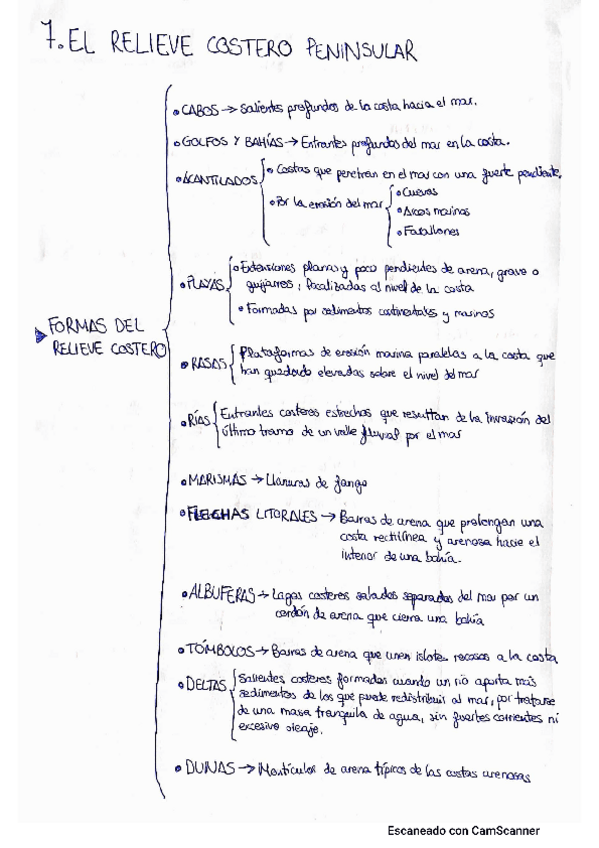 7. EL RELIEVE COSTERO PENINSULAR
FORMAS DEL
RELIEVE COSTERO
• CABOS → Salientes profundos de la costa hacia el mar.
• GOLFOS Y BAHÍAS → Entrantes profundos del mar en la costa.
• ACANTILADOS
• Costas que penetran en el mar con una fuerte pendiente.
• Por la erosión del mar
• Cuevas
• Arcos marinos
• Farallones
• PLAYAS
• Extensiones planas y poco pendientes de arena, grava o
guijarros, focalizadas al nivel de la costa
• Formadas por sedimentos continentales y marinos
• RASAS
Plataformas de erosión marina paralelas a la costa que
han quedado elevadas sobre el nivel del mar
• RÍAS
Entrantes costeros estrechos que resultan de la invasión del
último tramo de un valle fluvial por el mar
• MARISMAS → Llanuras de fango
• FLECHAS LITORALES → Barras de arena que prolongan una
costa rectilínea y arenosa hacie el
interior de una bahía.
• ALBUFERAS → Lagos costeros salados separados del mar por un
cordón de arena que cierra una bahía
• TÓMBOLOS → Barras de arena que unen islotes rocosos a la costa
• DELTAS
Salientes costeros formados cuando un río aporta más
sedimentos de los que puede redistribuir al mar, por tratarse
de una masa tranquila de agua, sin fuertes corrientes ni
excesivo oleaje.
• DUNAS → Montículos de arena típicos de las costas arenosas
Escaneado con CamScanner